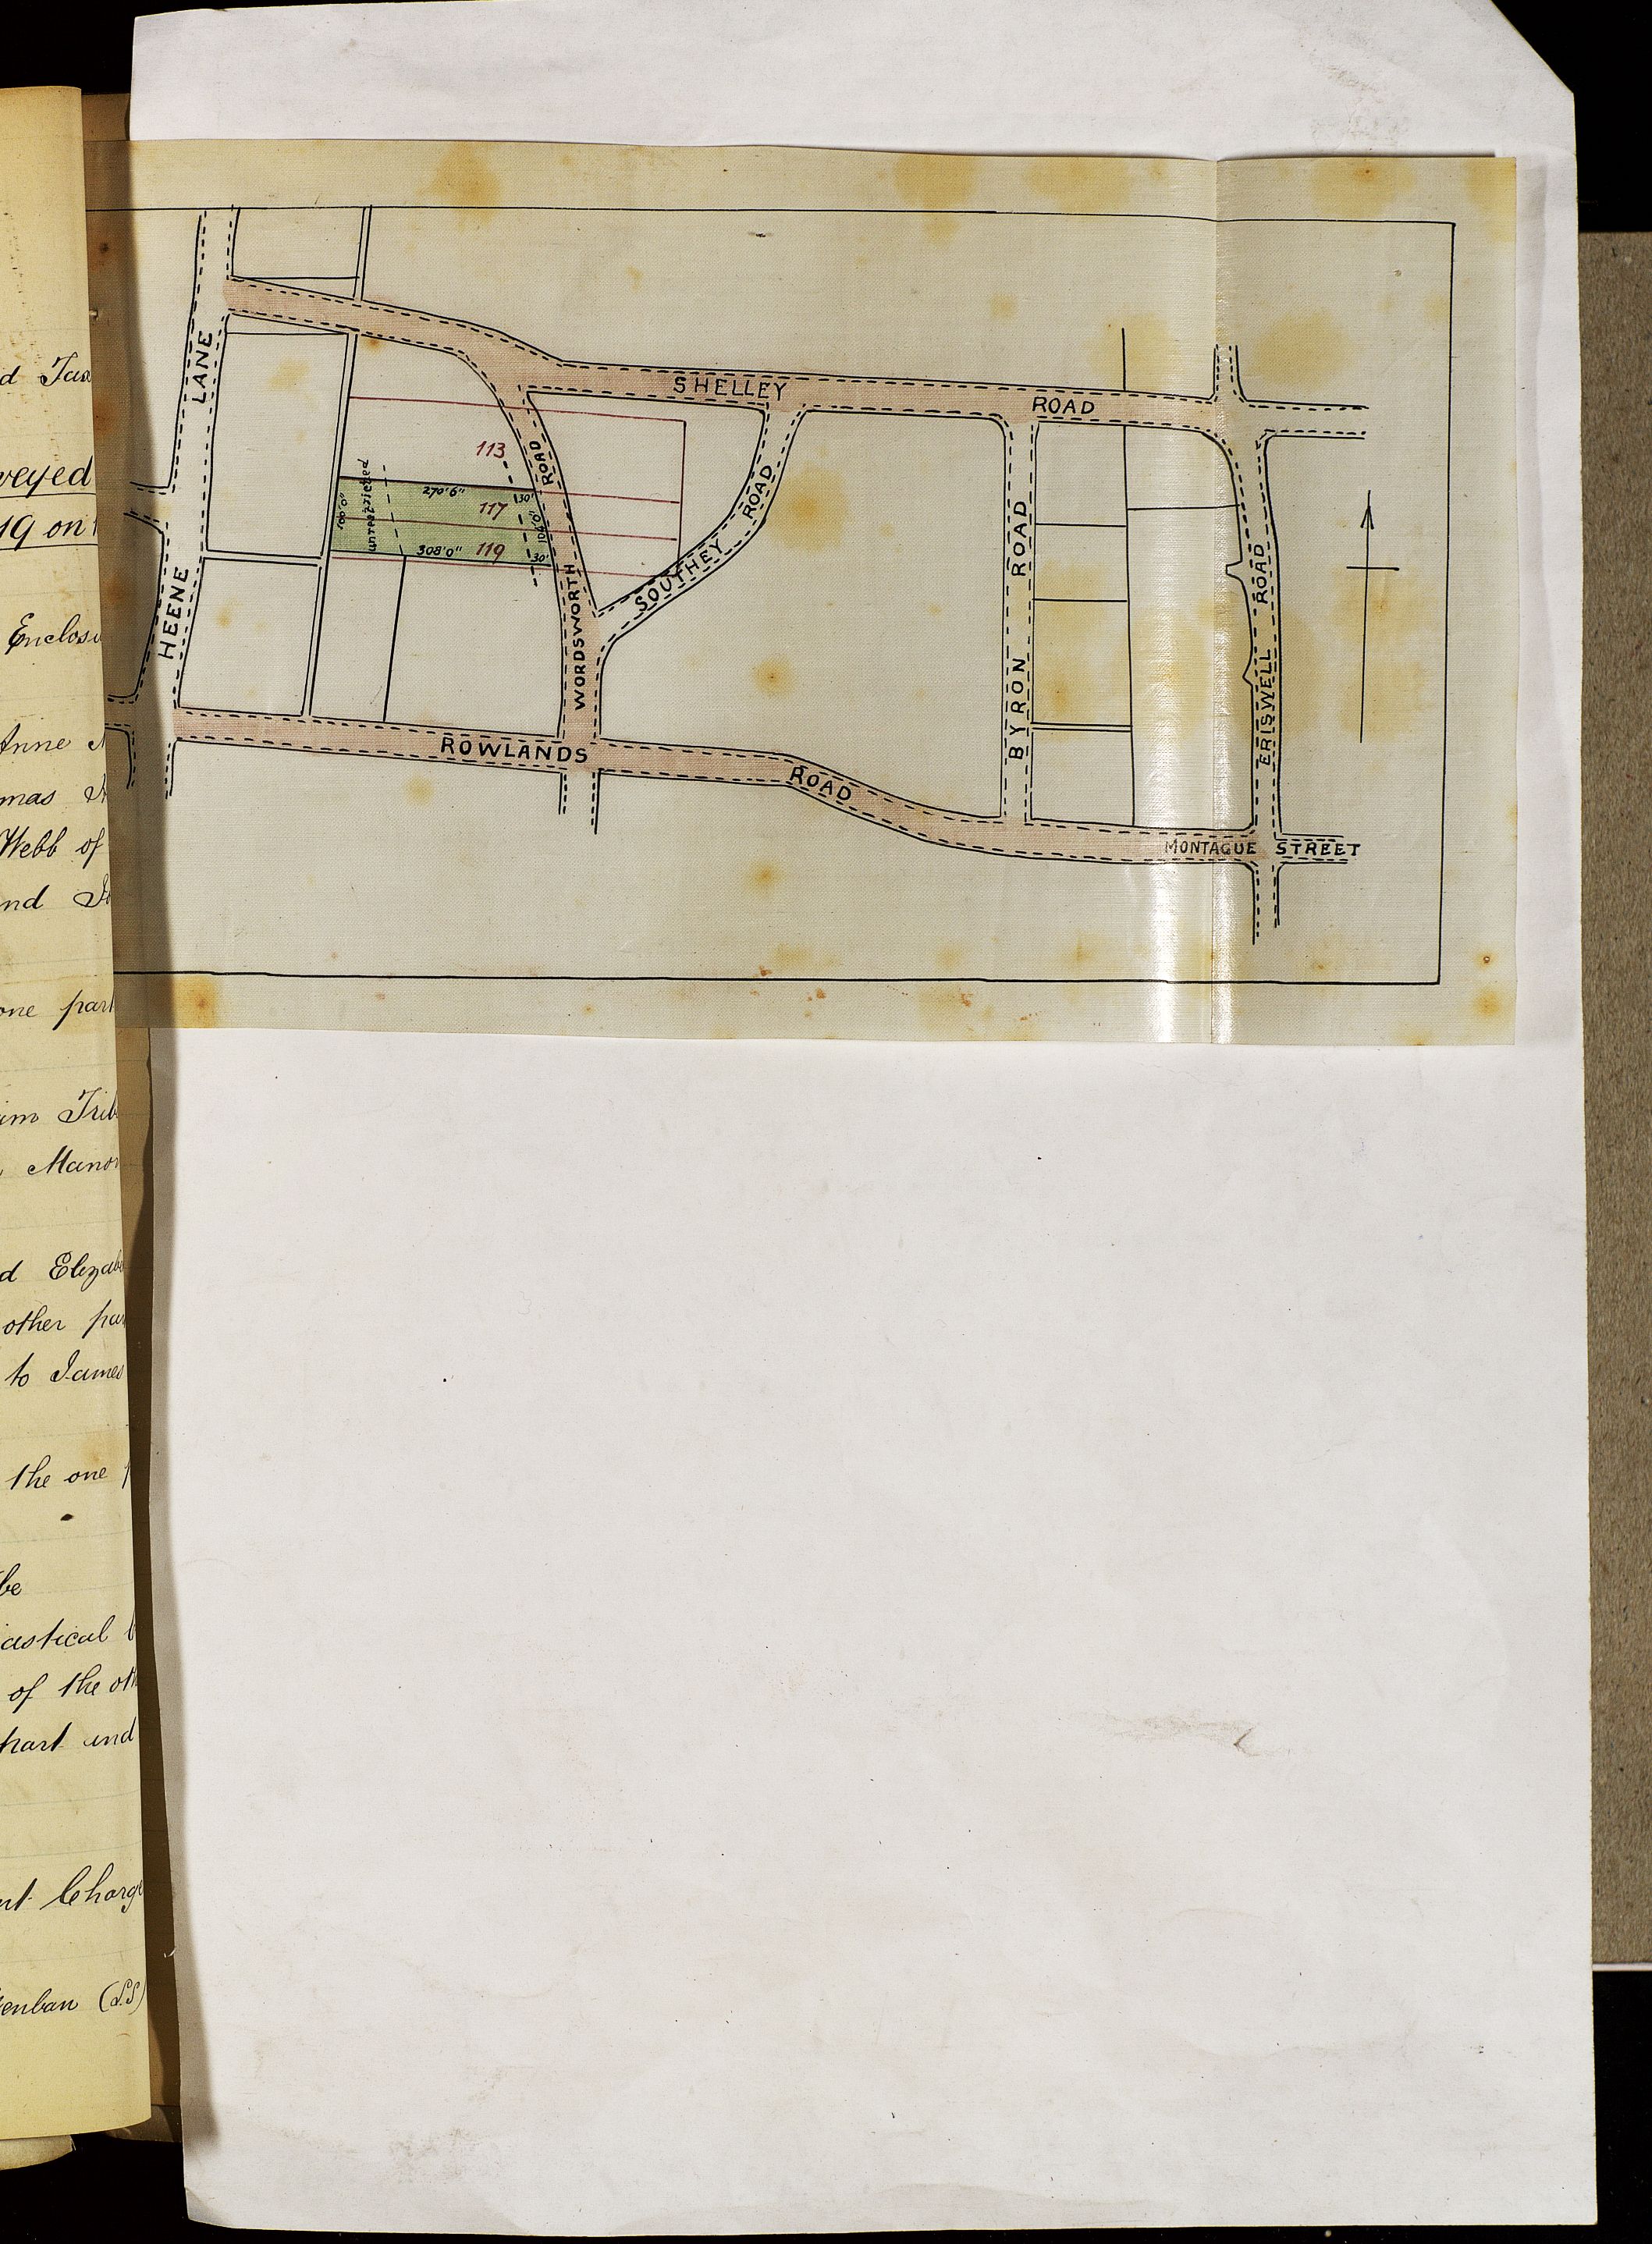 d
veyed
19 on
Enclosu
Anne
mas
Webb of
nd
one part
im Trib
Manor
d Elizab
other par
to James
the one p
be
astical
of the oth
part and
nt Charge
enban (LS)
HEENE LANE
SHELLEY ROAD
113
270'6"
30'
117
100'0"
104'0"
308'0"
119
30'
WORDSWORTH ROAD
SOUTHEY ROAD
BYRON ROAD
ERISWELL ROAD
ROWLANDS ROAD
MONTAGUE STREET